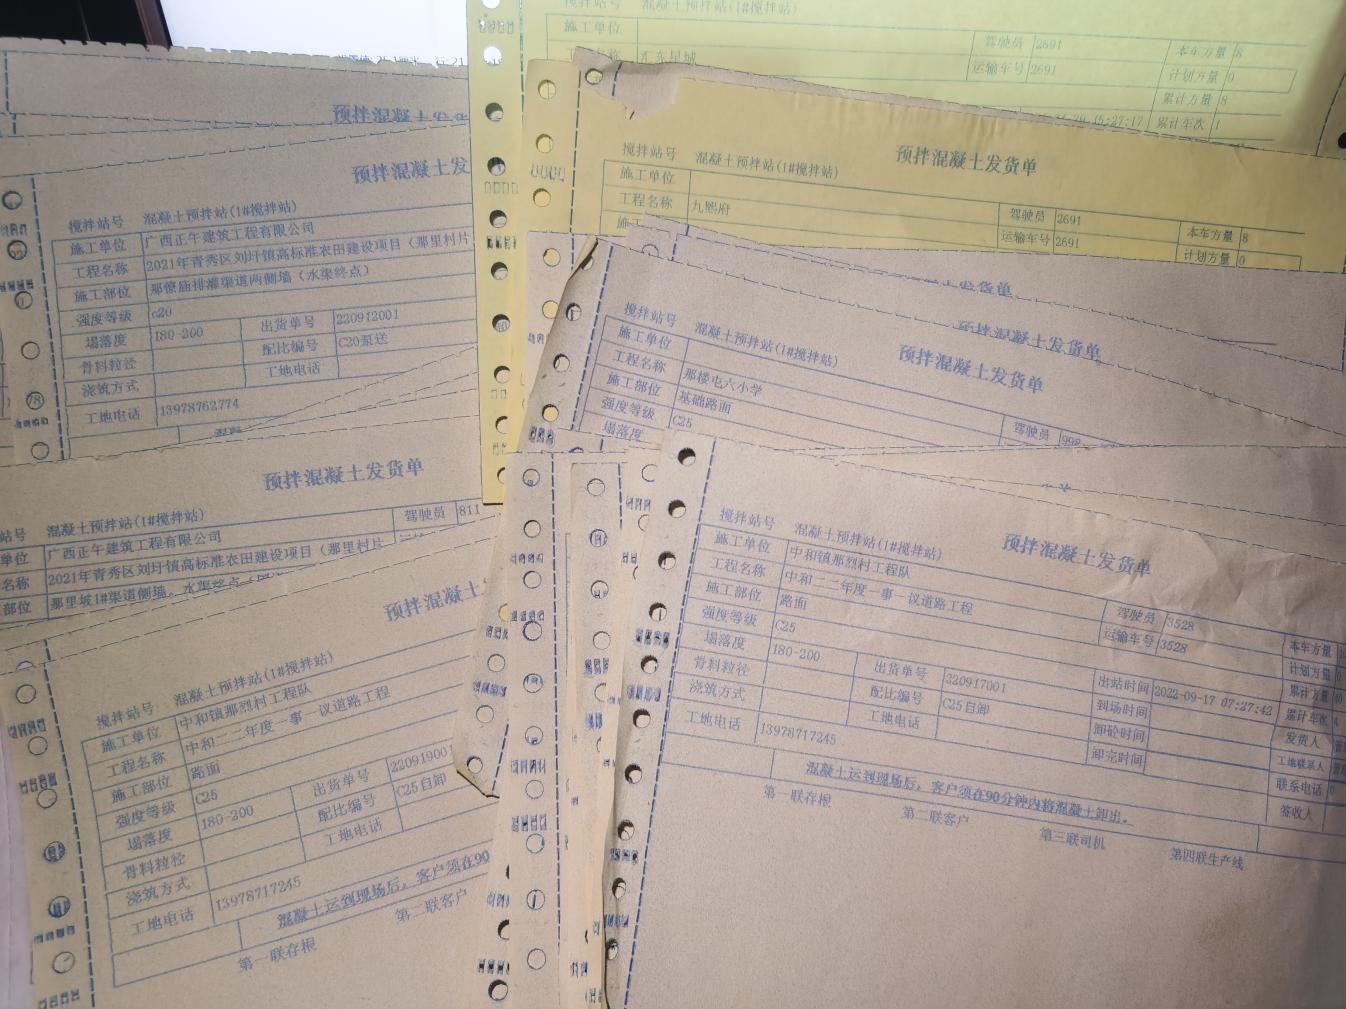 混凝土预拌站(1#搅拌站)
施工单位
驾驶员 2691
本车方量 8
工程名称 汇东星城
运输车号 2691
计划方量 0
累计方量 8
15:27:17 累计车次 1
预拌混凝土发货单
搅拌站号 混凝土预拌站(1#搅拌站)
施工单位
工程名称 九熙府
驾驶员 2691
本车方量 8
运输车号 2691
计划方量 0
预拌混凝土发
搅拌站号 混凝土预拌站(1#搅拌站)
施工单位 广西正午建筑工程有限公司
工程名称 2021年青秀区刘圩镇高标准农田建设项目（那里村片
施工部位 那僚庙排灌渠道两侧墙（水渠终点）
强度等级 c20
塌落度 180-200 出货单号 220912001
骨料粒径 配比编号 C20泵送
浇筑方式 工地电话
工地电话 13978762774
预拌混凝土发货单
搅拌站号 混凝土预拌站(1#搅拌站)
施工单位
工程名称 那楼屯六小学
施工部位 基础路面
强度等级 C25
塌落度
驾驶员 998
预拌混凝土发货单
站号 混凝土预拌站(1#搅拌站)
驾驶员 811
单位 广西正午建筑工程有限公司
名称 2021年青秀区刘圩镇高标准农田建设项目（那里村片
部位 那里坡1#渠道侧墙，水渠终点
预拌混凝土
搅拌站号 混凝土预拌站(1#搅拌站)
施工单位 中和镇那烈村工程队
工程名称 中和二二年度一事一议道路工程
施工部位 路面
强度等级 C25
塌落度 180-200 出货单号 22091900
骨料粒径 配比编号 C25自卸
浇筑方式 工地电话
工地电话 13978717245
混凝土运到现场后，客户须在90
第一联存根 第二联客户
预拌混凝土发货单
搅拌站号 混凝土预拌站(1#搅拌站)
施工单位 中和镇那烈村工程队
工程名称 中和二二年度一事一议道路工程
驾驶员 3528
本车方量
施工部位 路面
运输车号 3528
计划方量
强度等级 C25
累计方量
塌落度 180-200 出货单号 220917001 出站时间 2022-09-17 07:27:42 累计车次
骨料粒径 配比编号 C25自卸 到场时间 发货人
浇筑方式 工地电话 卸砼时间 工地联系人
工地电话 13978717245 卸完时间 联系电话 0
签收人
混凝土运到现场后，客户须在90分钟内将混凝土卸出。
第一联存根 第二联客户 第三联司机 第四联生产线